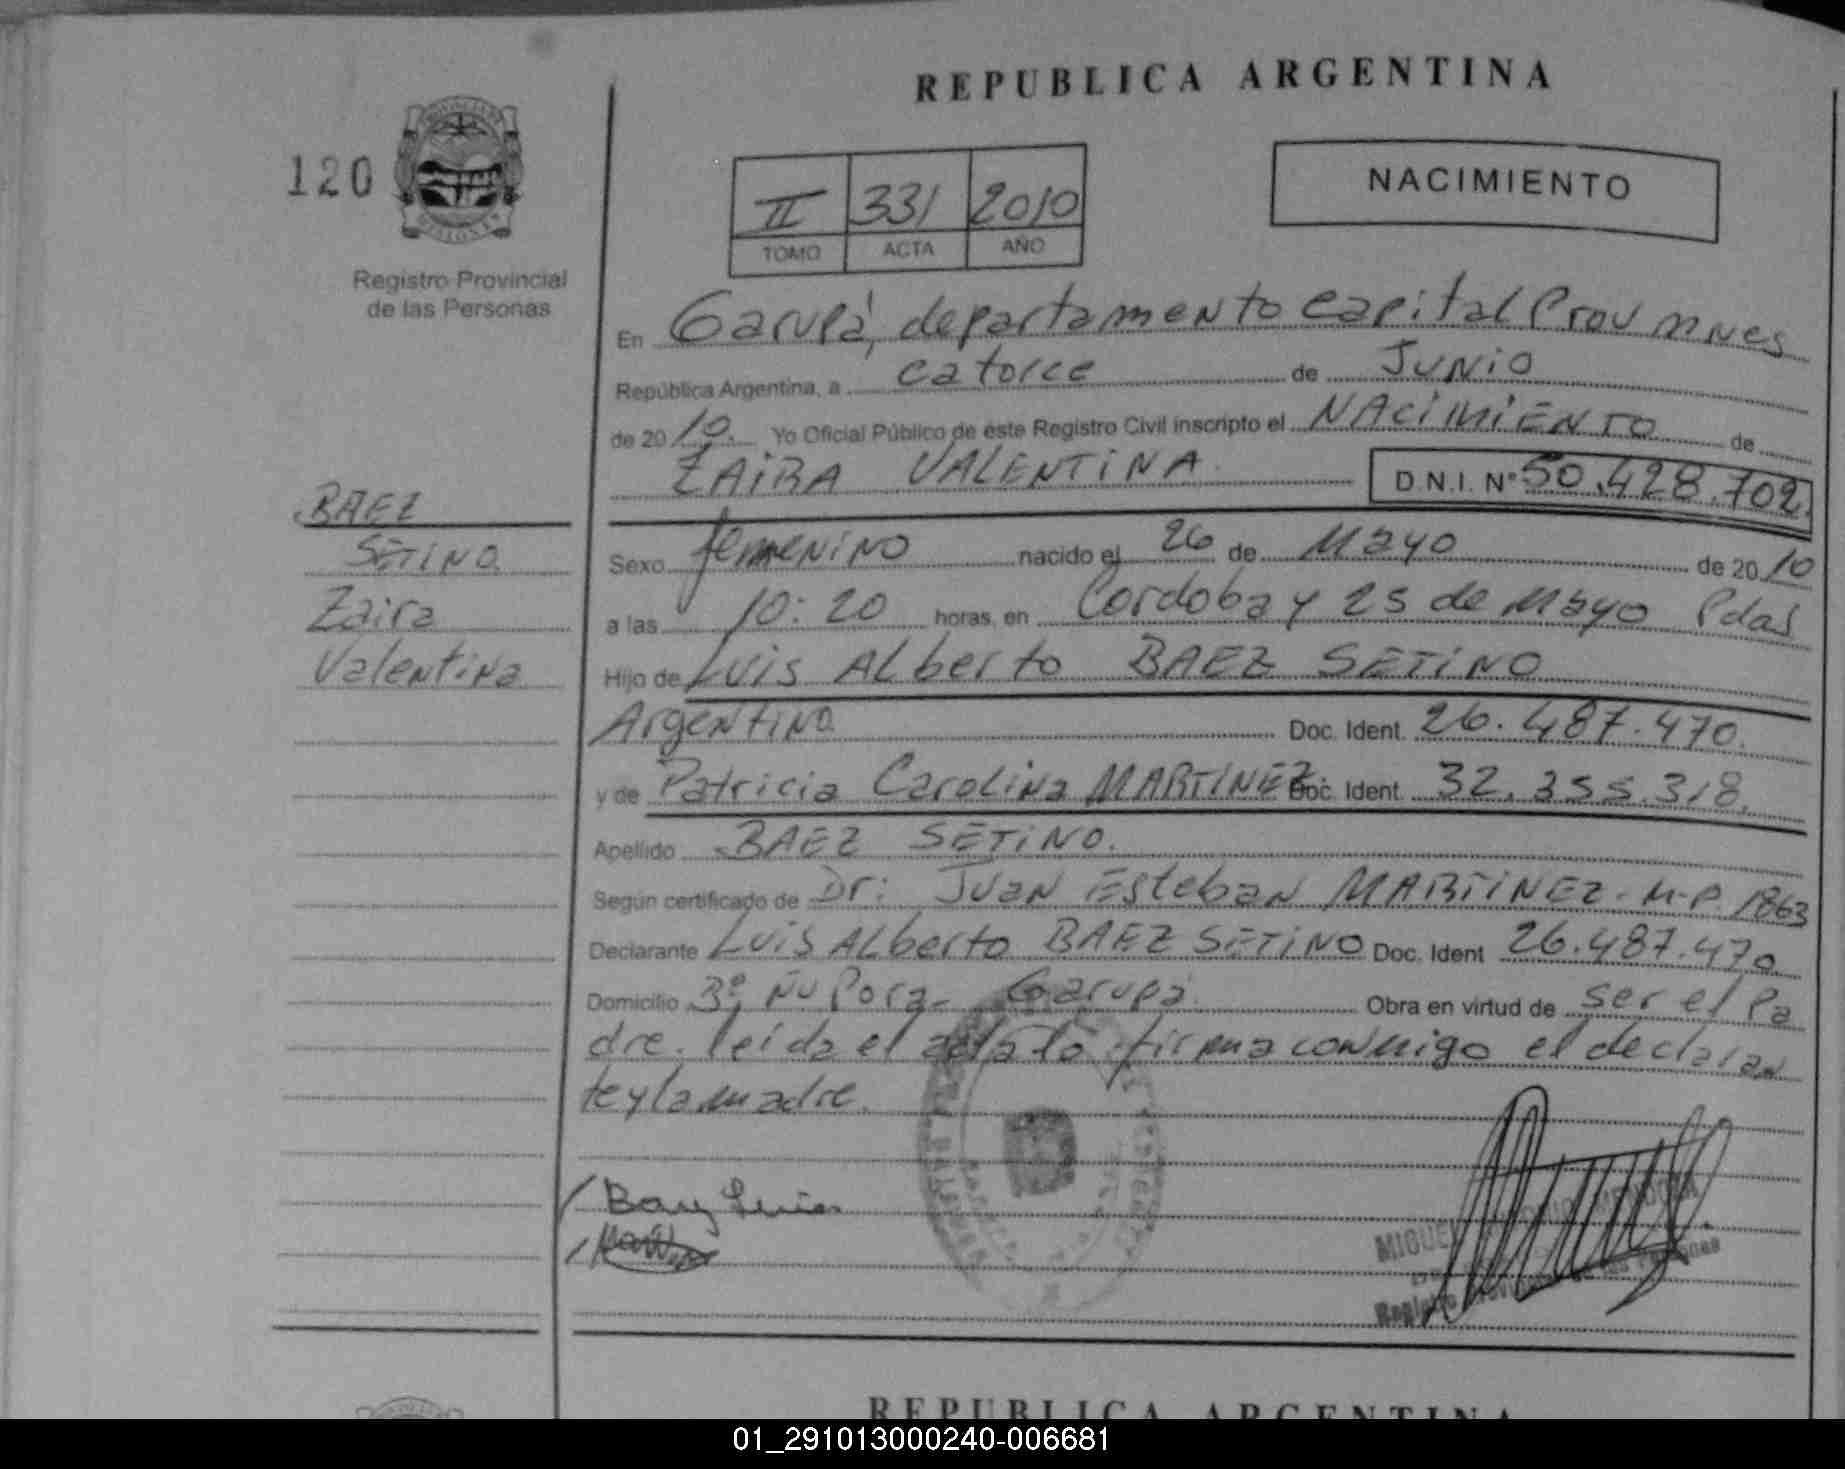 REPUBLICA ARGENTINA
120
NACIMIENTO
II 331 2010
TOMO ACTA AÑO
Registro Provincial
de las Personas
En Garupá, departamento Capital Prov mnes
República Argentina, a catorce de Junio
de 2010. Yo Oficial Público de este Registro Civil inscripto el NACIMIENTO de
ZAIRA VALENTINA. D.N.I. Nº 50.428.702.
BAEZ
SETINO
Zaira
Valentina
Sexo femenino nacido el 26 de Mayo de 2010
a las 10:20 horas, en Cordoba y 25 de Mayo Pdas
Hijo de Luis Alberto BAEZ SETINO
Argentino Doc. Ident. 26.487.470.
y de Patricia Carolina MARTINEZ Doc. Ident. 32.355.318.
Apellido BAEZ SETINO.
Según certificado de Dr: Juan Esteban MARTINEZ. M.P. 1863
Declarante Luis Alberto BAEZ SETINO Doc. Ident 26.487.470
Domicilio Bº Ñu Pora- Garupa. Obra en virtud de ser el Pa
dre. leida el acta la firma conmigo el declaran
te y la madre.
Baez Luis
MIGUEL MENDOZA
Registro
REPUBLICA ARGENTINA
01_291013000240-006681